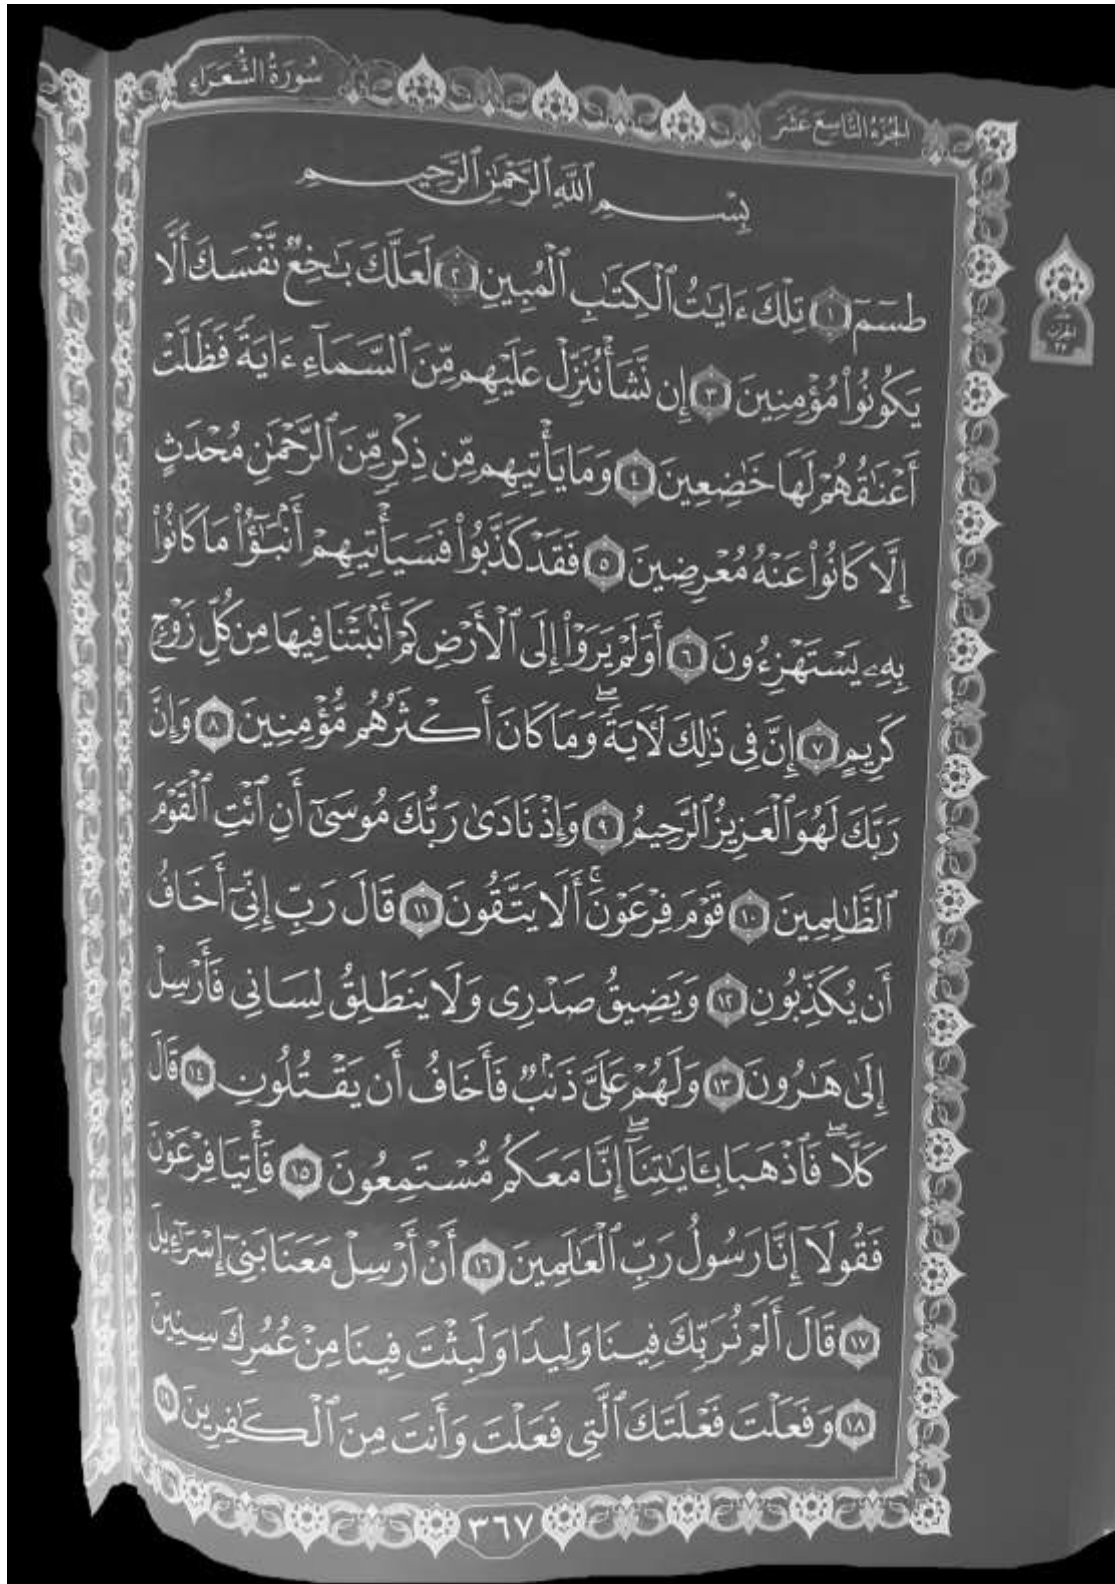 سُورَةُ الشُّعَرَاءِ
الجُزْءُ التَّاسِعَ عَشَرَ
بِسْمِ ٱللَّهِ ٱلرَّحْمَٰنِ ٱلرَّحِيمِ
طسٓمٓ ١ تِلْكَ ءَايَٰتُ ٱلْكِتَٰبِ ٱلْمُبِينِ ٢ لَعَلَّكَ بَٰخِعٌ نَّفْسَكَ أَلَّا
يَكُونُوا۟ مُؤْمِنِينَ ٣ إِن نَّشَأْ نُنَزِّلْ عَلَيْهِم مِّنَ ٱلسَّمَآءِ ءَايَةً فَظَلَّتْ
أَعْنَٰقُهُمْ لَهَا خَٰضِعِينَ ٤ وَمَا يَأْتِيهِم مِّن ذِكْرٍ مِّنَ ٱلرَّحْمَٰنِ مُحْدَثٍ
إِلَّا كَانُوا۟ عَنْهُ مُعْرِضِينَ ٥ فَقَدْ كَذَّبُوا۟ فَسَيَأْتِيهِمْ أَنۢبَٰٓؤُا۟ مَا كَانُوا۟
بِهِۦ يَسْتَهْزِءُونَ ٦ أَوَلَمْ يَرَوْا۟ إِلَى ٱلْأَرْضِ كَمْ أَنۢبَتْنَا فِيهَا مِن كُلِّ زَوْجٍ
كَرِيمٍ ٧ إِنَّ فِى ذَٰلِكَ لَءَايَةً ۖ وَمَا كَانَ أَكْثَرُهُم مُّؤْمِنِينَ ٨ وَإِنَّ
رَبَّكَ لَهُوَ ٱلْعَزِيزُ ٱلرَّحِيمُ ٩ وَإِذْ نَادَىٰ رَبُّكَ مُوسَىٰٓ أَنِ ٱئْتِ ٱلْقَوْمَ
ٱلظَّٰلِمِينَ ١٠ قَوْمَ فِرْعَوْنَ ۚ أَلَا يَتَّقُونَ ١١ قَالَ رَبِّ إِنِّىٓ أَخَافُ
أَن يُكَذِّبُونِ ١٢ وَيَضِيقُ صَدْرِى وَلَا يَنطَلِقُ لِسَانِى فَأَرْسِلْ
إِلَىٰ هَٰرُونَ ١٣ وَلَهُمْ عَلَىَّ ذَنۢبٌ فَأَخَافُ أَن يَقْتُلُونِ ١٤ قَالَ
كَلَّا ۖ فَٱذْهَبَا بِـَٔايَٰتِنَآ ۖ إِنَّا مَعَكُم مُّسْتَمِعُونَ ١٥ فَأْتِيَا فِرْعَوْنَ
فَقُولَآ إِنَّا رَسُولُ رَبِّ ٱلْعَٰلَمِينَ ١٦ أَنْ أَرْسِلْ مَعَنَا بَنِىٓ إِسْرَٰٓءِيلَ
١٧ قَالَ أَلَمْ نُرَبِّكَ فِينَا وَلِيدًا وَلَبِثْتَ فِينَا مِنْ عُمُرِكَ سِنِينَ
١٨ وَفَعَلْتَ فَعْلَتَكَ ٱلَّتِى فَعَلْتَ وَأَنتَ مِنَ ٱلْكَٰفِرِينَ ١٩
٣٦٧